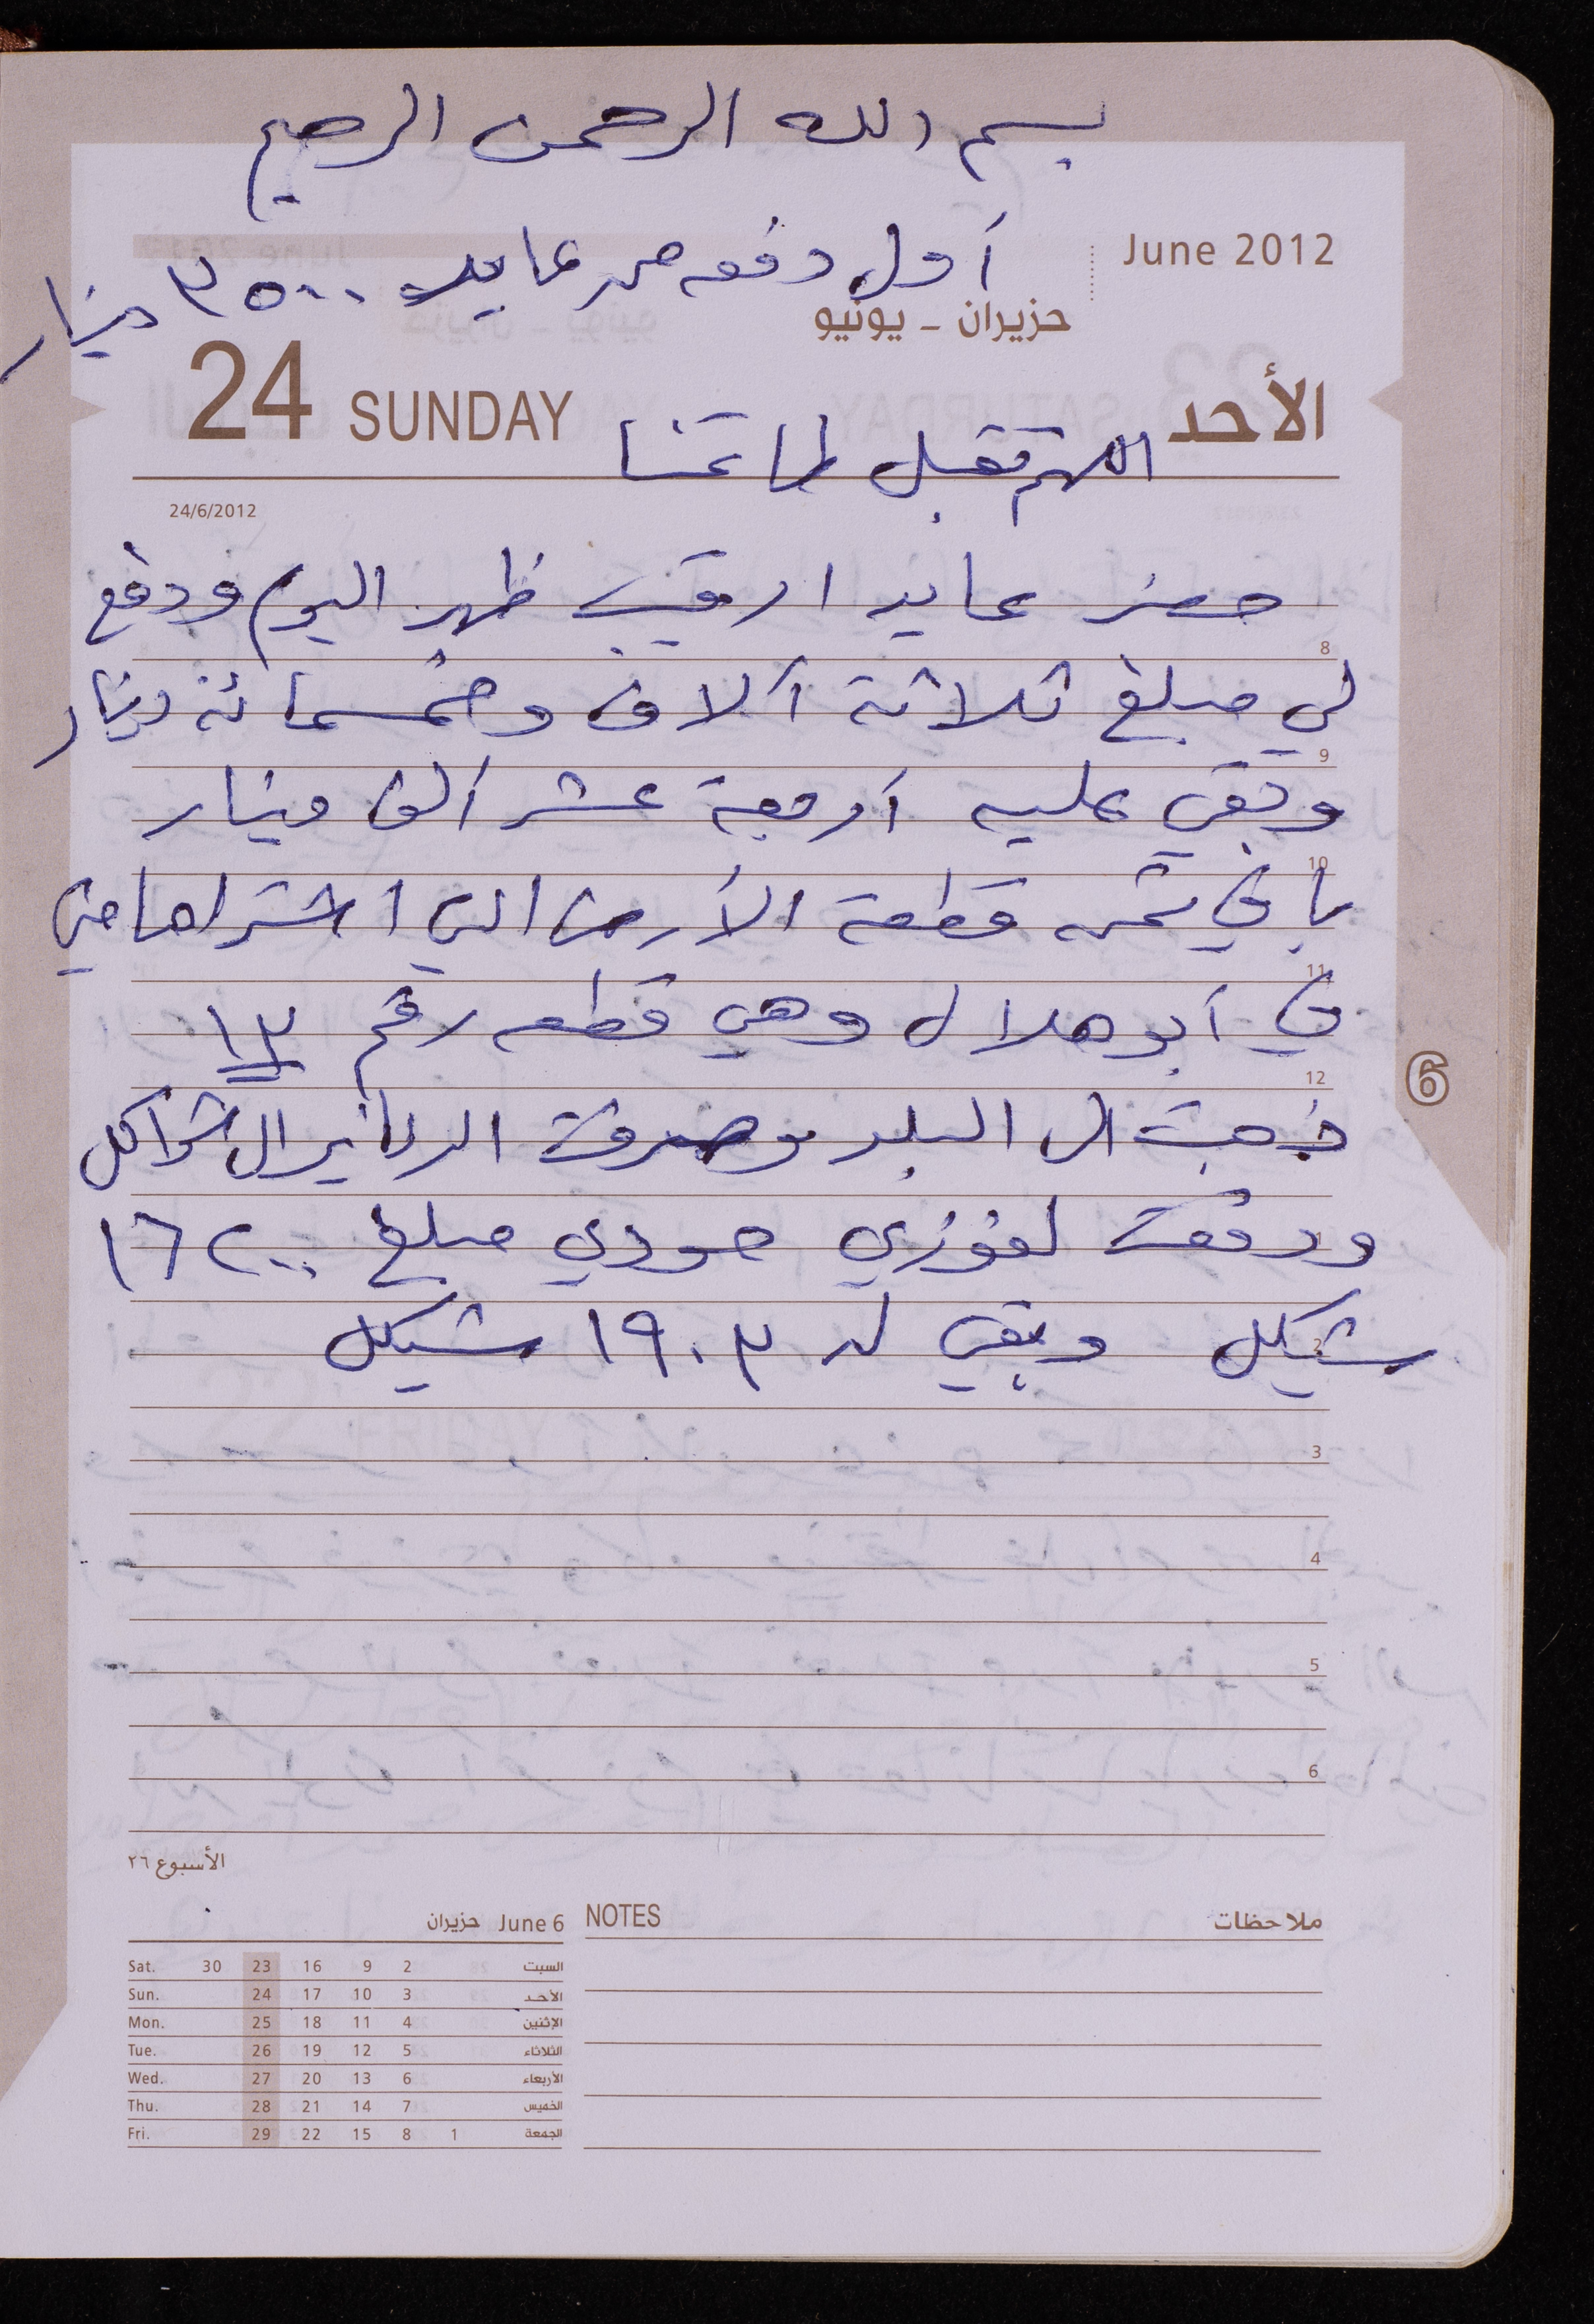 بسم الله الرحمن الرحيم
June 2012
أول دفعه من عايد ٣٥٠٠ دينار
حزيران - يونيو
24 SUNDAY الأحد
اللهم تقبل طاعتنا
24/6/2012
حضر عايد ظهر اليوم ودفع
8
لي مبلغ ثلاثة آلاف وخمسمائة دينار
9
وبقي عليه أربعة عشر ألف دينار
10
باقي ثمن قطعة الأرض التي اشتراها مني
11
في أبو هلال وهي قطعه رقم ١٣
12
6
ذهبت الى البلد وصرفت الدنانير الى شواكل
ودفعت لفوزي حمودي مبلغ ١٦٢٠٠
شيكل وبقي له ١٩٠٣ شيكل
2
3
4
5
6
الأسبوع ٢٦
حزيران June 6
NOTES ملاحظات
Sat. 30 23 16 9 2 السبت
Sun. 24 17 10 3 الأحد
Mon. 25 18 11 4 الإثنين
Tue. 26 19 12 5 الثلاثاء
Wed. 27 20 13 6 الأربعاء
Thu. 28 21 14 7 الخميس
Fri. 29 22 15 8 1 الجمعة